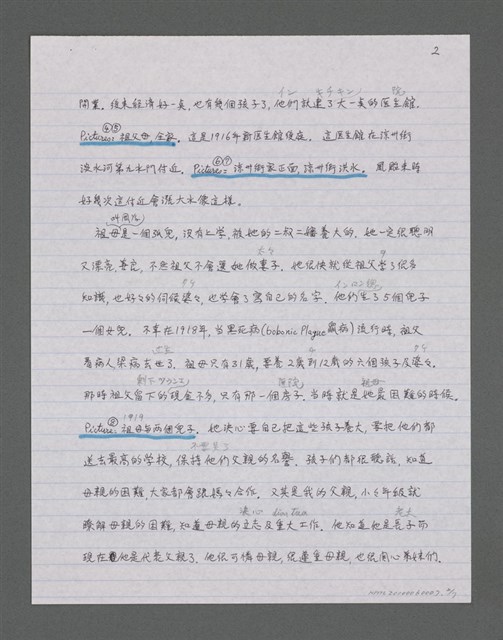 2
開業. 後來經濟好一奌, 也有幾個孩子了, 他們就建了大一奌的医生館.
Picture ④⑤: 祖父母, 全家. 這是1916年新医生館後庭. 這医生館在涼州街
淡水河第九水門付近. Picture ⑥⑦: 涼州街家正面, 涼州街洪水. 風颱來時
好幾次這付近會漲大水像這樣.
叫鳳凡
祖母是一個孤兒, 沒有上學, 被她的二叔二嬸養大的. 她一定很聰明
太太
又漂亮善良, 不然祖父不會選她做妻子. 她很快就從祖父學了很多
知識, 也好々的伺候婆々, 也學會了寫自己的名字. 他們生了5個兒子
一個女兒. 不幸在1918年, 当黑死病(bobonic Plague 鼠病) 流行時, 祖父
看病人染病去世了. 祖母只有31歲, 要養2歲到12歲的六個孩子及婆々.
那時祖父留下的現金不多, 只有那一個房子. 当時就是她最困難的時候.
1919
Picture ⑧: 祖母与兩個兒子. 她決心要自己把這些孩子養大, 要把他們都
送去最高的学校, 保持他們父親的名譽. 孩子們都很聽話, 知道
母親的困難, 大家都會跟媽々合作. 尤其是我的父親, 小々年級就
瞭解母親的困難, 知道母親的立志及重大工作. 他知道他是長子而
現在他是代表父親了. 他很可憐母親, 很尊重母親, 也很関心弟妹們.